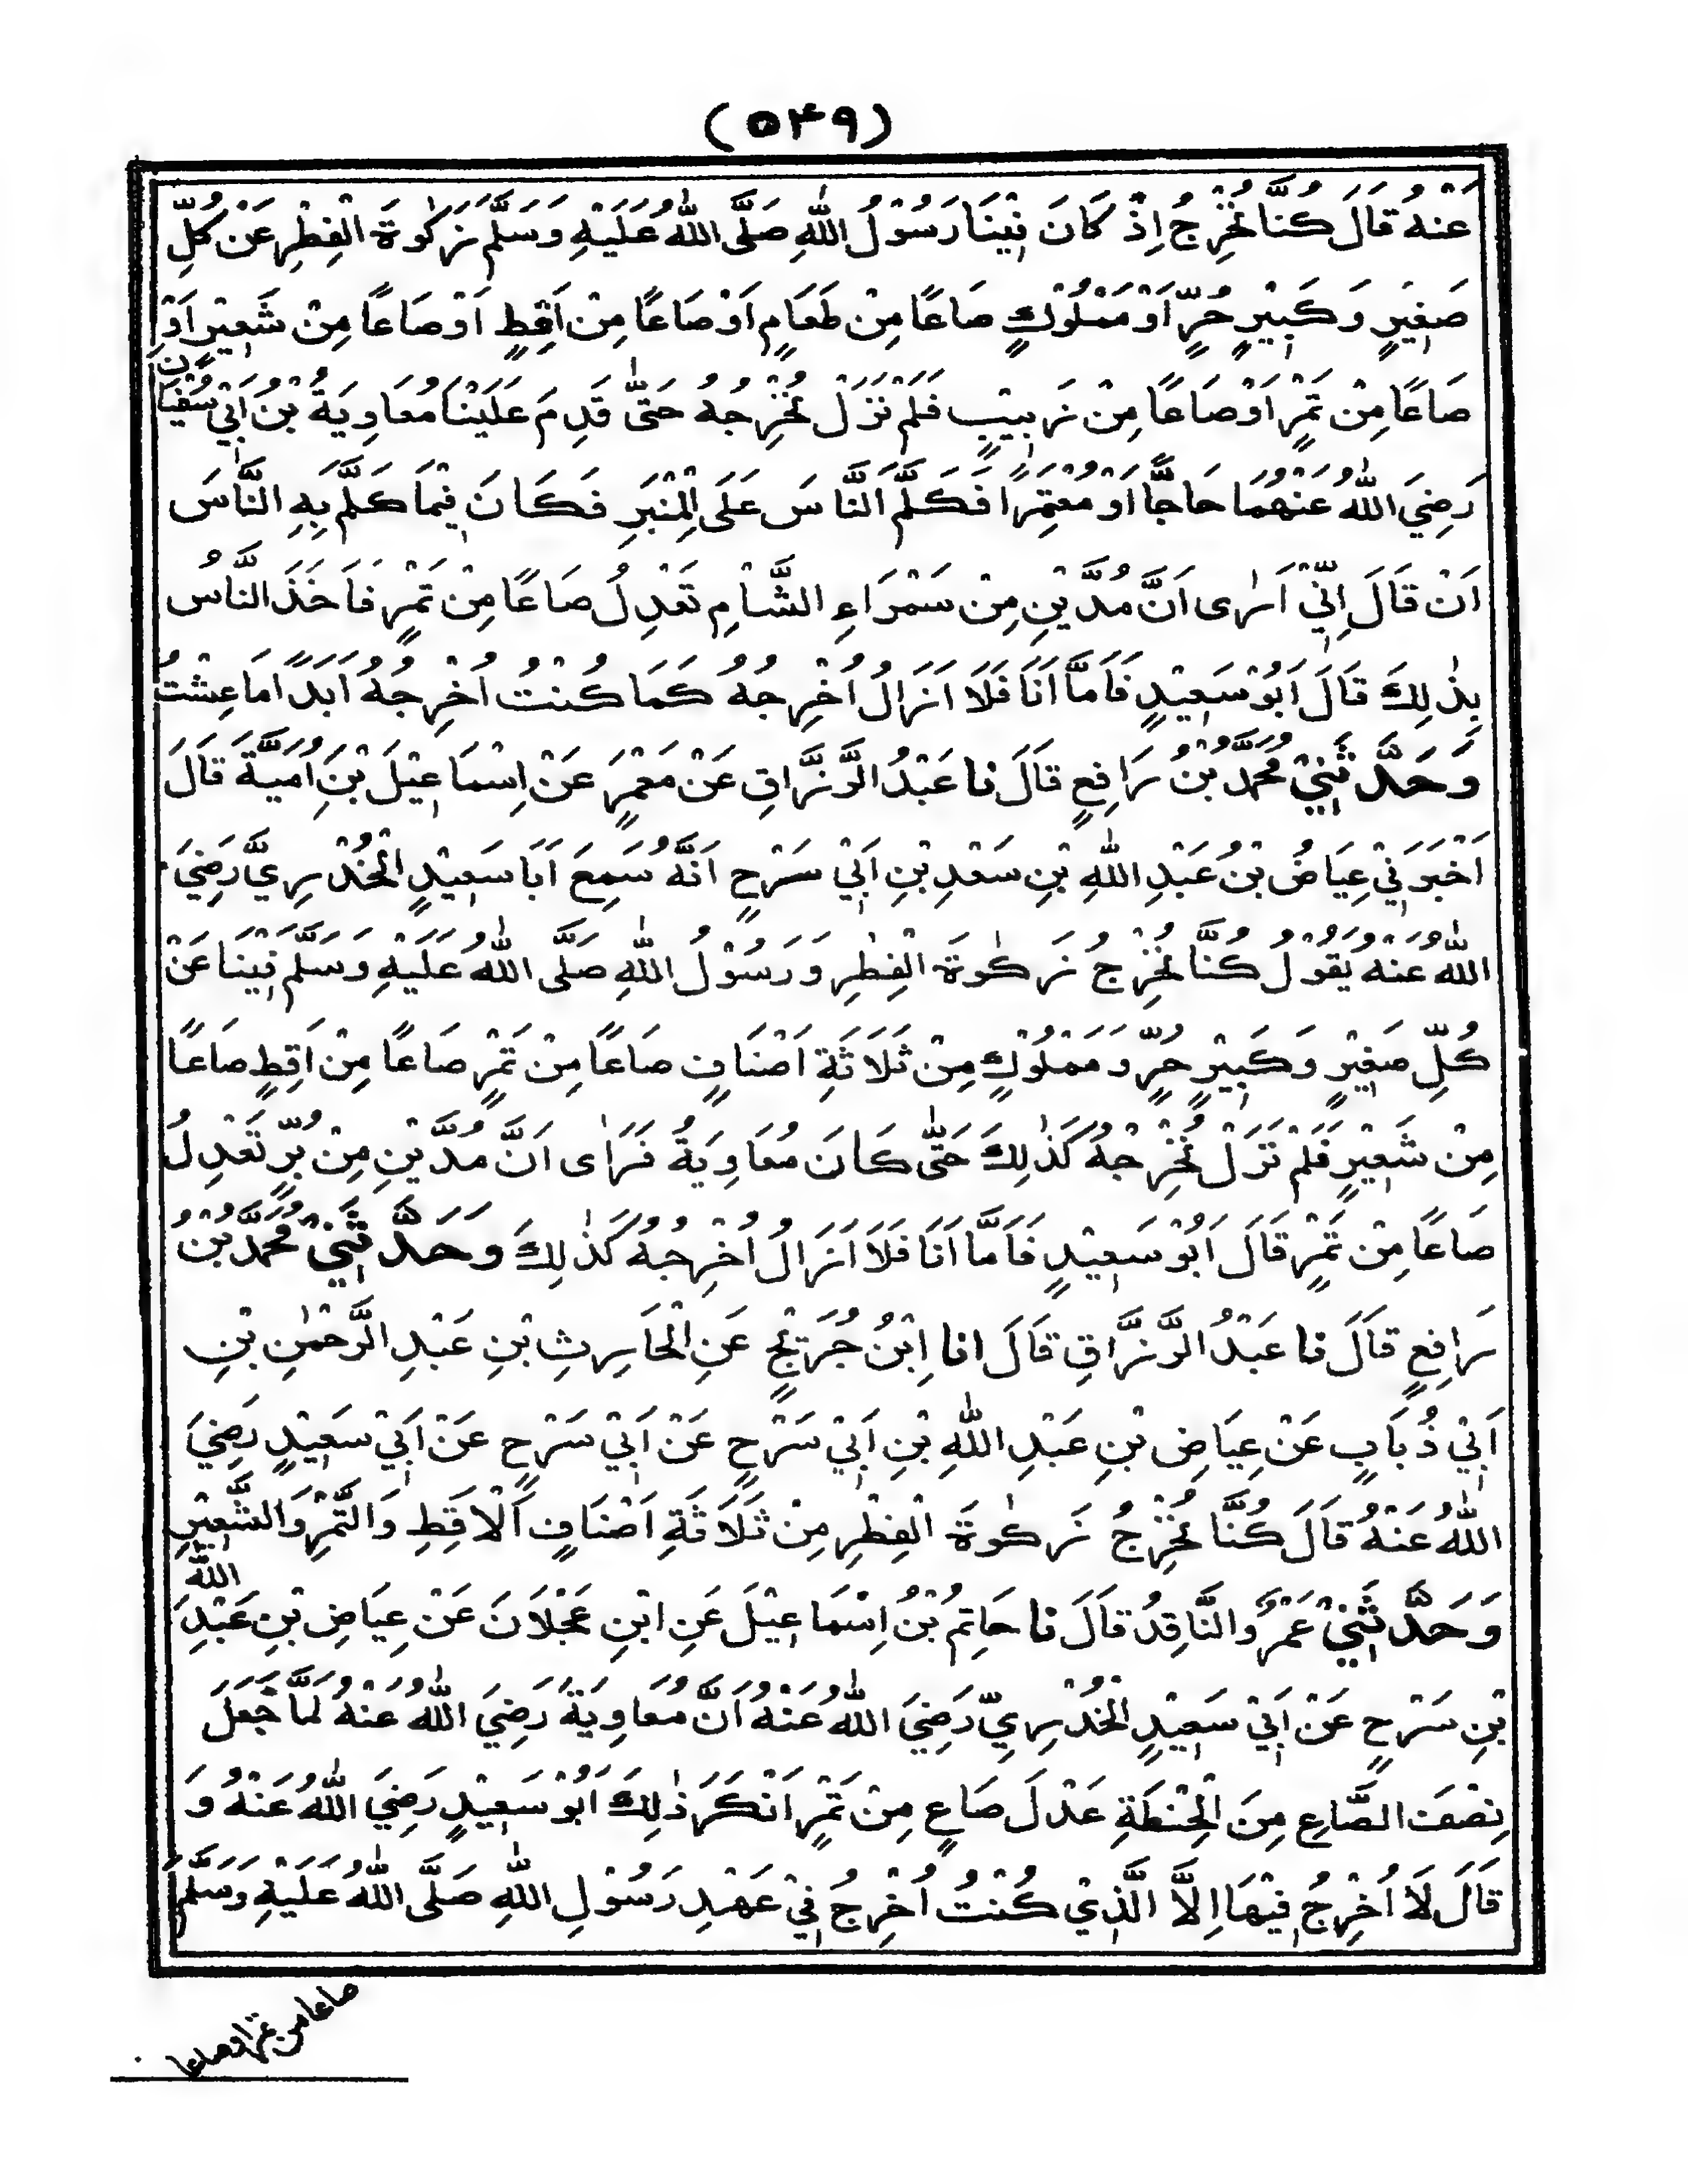 (۵۴۹)
عَنْهُ قَالَ كُنَّا نُخْرِجُ اِذْ كَانَ فِيْنَا رَسُوْلُ اللّٰهِ صَلَّى اللّٰهُ عَلَيْهِ وَسَلَّمَ زَكٰوةَ الْفِطْرِ عَنْ كُلِّ
صَغِيْرٍ وَكَبِيْرٍ حُرٍّ اَوْ مَمْلُوْكٍ صَاعًا مِنْ طَعَامٍ اَوْ صَاعًا مِنْ اَقِطٍ اَوْ صَاعًا مِنْ شَعِيْرٍ اَوْ
صَاعًا مِنْ تَمْرٍ اَوْ صَاعًا مِنْ زَبِيْبٍ فَلَمْ نَزَلْ نُخْرِجُهُ حَتّٰى قَدِمَ عَلَيْنَا مُعَاوِيَةُ بْنُ اَبِيْ سُفْيَانَ
رَضِيَ اللّٰهُ عَنْهُمَا حَاجًّا اَوْ مُعْتَمِرًا فَكَلَّمَ النَّاسَ عَلَى الْمِنْبَرِ فَكَانَ فِيْمَا كَلَّمَ بِهِ النَّاسَ
اَنْ قَالَ اِنِّيْ اَرٰى اَنَّ مُدَّيْنِ مِنْ سَمْرَاءِ الشَّامِ تَعْدِلُ صَاعًا مِنْ تَمْرٍ فَاَخَذَ النَّاسُ
بِذٰلِكَ قَالَ اَبُوْ سَعِيْدٍ فَاَمَّا اَنَا فَلَا اَزَالُ اُخْرِجُهُ كَمَا كُنْتُ اُخْرِجُهُ اَبَدًا مَا عِشْتُ
وَحَدَّثَنِيْ مُحَمَّدُ بْنُ رَافِعٍ قَالَ نا عَبْدُ الرَّزَّاقِ عَنْ مَعْمَرٍ عَنْ اِسْمَاعِيْلَ بْنِ اُمَيَّةَ قَالَ
اَخْبَرَنِيْ عِيَاضُ بْنُ عَبْدِ اللّٰهِ بْنِ سَعْدِ بْنِ اَبِيْ سَرْحٍ اَنَّهُ سَمِعَ اَبَا سَعِيْدٍ الْخُدْرِيَّ رَضِيَ
اللّٰهُ عَنْهُ يَقُوْلُ كُنَّا نُخْرِجُ زَكٰوةَ الْفِطْرِ وَرَسُوْلُ اللّٰهِ صَلَّى اللّٰهُ عَلَيْهِ وَسَلَّمَ فِيْنَا عَنْ
كُلِّ صَغِيْرٍ وَكَبِيْرٍ حُرٍّ وَمَمْلُوْكٍ مِنْ ثَلَاثَةِ اَصْنَافٍ صَاعًا مِنْ تَمْرٍ صَاعًا مِنْ اَقِطٍ صَاعًا
مِنْ شَعِيْرٍ فَلَمْ نَزَلْ نُخْرِجُهُ كَذٰلِكَ حَتّٰى كَانَ مُعَاوِيَةُ فَرَاٰى اَنَّ مُدَّيْنِ مِنْ بُرٍّ تَعْدِلُ
صَاعًا مِنْ تَمْرٍ قَالَ اَبُوْ سَعِيْدٍ فَاَمَّا اَنَا فَلَا اَزَالُ اُخْرِجُهُ كَذٰلِكَ وَحَدَّثَنِيْ مُحَمَّدُ بْنُ
رَافِعٍ قَالَ نا عَبْدُ الرَّزَّاقِ قَالَ انا ابْنُ جُرَيْجٍ عَنِ الْحَارِثِ بْنِ عَبْدِ الرَّحْمٰنِ بْنِ
اَبِيْ ذُبَابٍ عَنْ عِيَاضِ بْنِ عَبْدِ اللّٰهِ بْنِ اَبِيْ سَرْحٍ عَنْ اَبِيْ سَرْحٍ عَنْ اَبِيْ سَعِيْدٍ رَضِيَ
اللّٰهُ عَنْهُ قَالَ كُنَّا نُخْرِجُ زَكٰوةَ الْفِطْرِ مِنْ ثَلَاثَةِ اَصْنَافٍ اَلْاَقِطِ وَالتَّمْرِ وَالشَّعِيْرِ
وَحَدَّثَنِيْ عَمْرٌو النَّاقِدُ قَالَ نا حَاتِمُ بْنُ اِسْمَاعِيْلَ عَنِ ابْنِ عَجْلَانَ عَنْ عِيَاضِ بْنِ عَبْدِ اللّٰهِ
بْنِ سَرْحٍ عَنْ اَبِيْ سَعِيْدٍ الْخُدْرِيِّ رَضِيَ اللّٰهُ عَنْهُ اَنَّ مُعَاوِيَةَ رَضِيَ اللّٰهُ عَنْهُ لَمَّا جَعَلَ
نِصْفَ الصَّاعِ مِنَ الْحِنْطَةِ عَدْلَ صَاعٍ مِنْ تَمْرٍ اَنْكَرَ ذٰلِكَ اَبُوْ سَعِيْدٍ رَضِيَ اللّٰهُ عَنْهُ وَ
قَالَ لَا اُخْرِجُ فِيْهَا اِلَّا الَّذِيْ كُنْتُ اُخْرِجُ فِيْ عَهْدِ رَسُوْلِ اللّٰهِ صَلَّى اللّٰهُ عَلَيْهِ وَسَلَّمَ
صاعا من تمر او صاعا